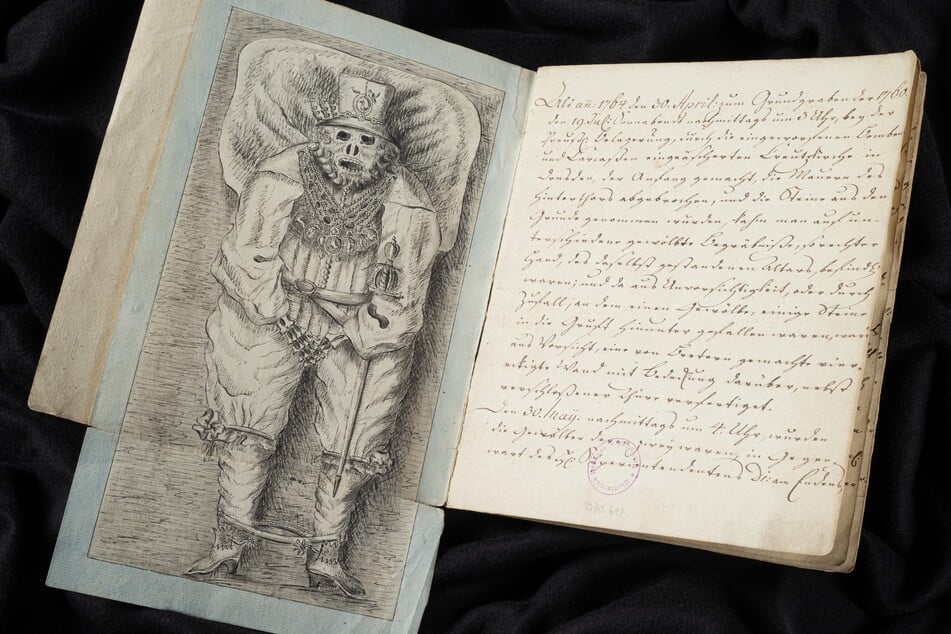 Als aō: 1764 den 30. April. zum Grundgraben der 1760.
den 19 Jul: Sonnabends nachmittags um 3 Uhr, bey der
Preuß: Belagerung, durch die eingeworfenen Bomben
und Carcassen eingeäscherten Creutzkirche in
Dresden, der Anfang gemacht, die Mauern des
Hinterthors abgebrochen, und die Steine aus dem
Grunde genommen wurden, sahe man auf un-
terschiedene gewölbte Begräbniße, so rechter
Hand, des daselbst gestandenen Altars, befindl:
waren; und da aus Unvorsichtigkeit, oder durch
Zufall, an dem einen Gewölbe, einige Steine
in die Gruft hinunter gefallen waren, war
aus Vorsicht, eine von Bretern gemachte vier-
eckigte Wand mit Bedeckung darüber, nebst
verschloßener Thüre verfertiget.
Den 30. Maij. nachmittags um 4. Uhr, wurden
die Gewölber, deren zwey waren, in Gegen-
wart des H: Superintendentens D: am Endens,